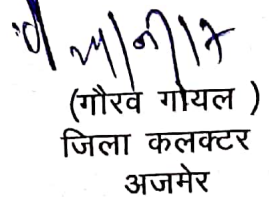 (गौरव गोयल )
जिला कलक्टर
अजमेर